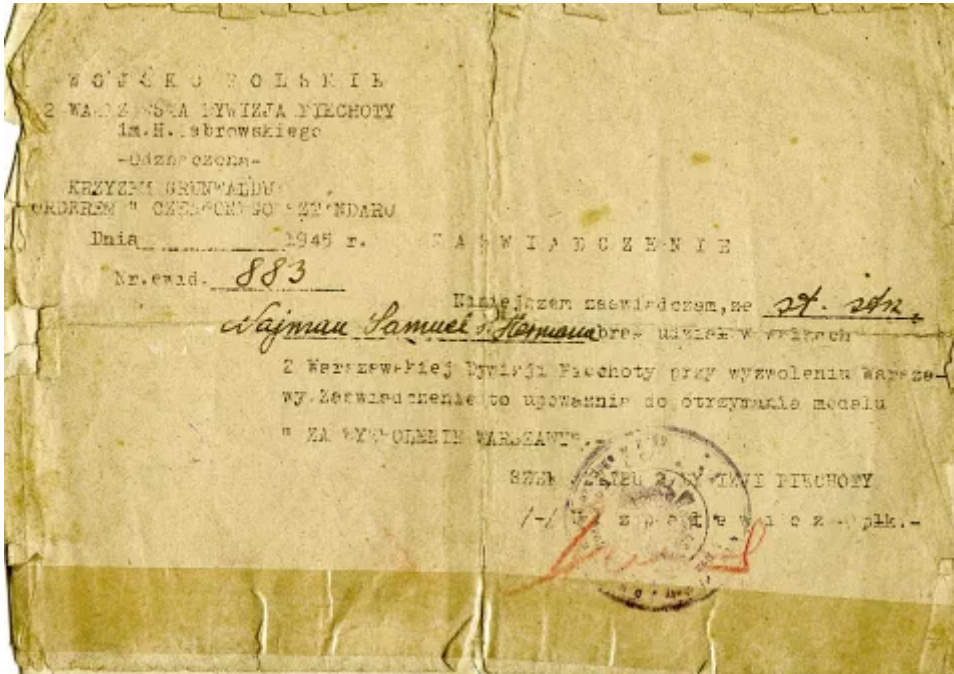 WOJSKO POLSKIE
2 WARSZAWSKA DYWIZJA PIECHOTY
im.H.Dąbrowskiego
-Odznaczona-
KRZYŻEM GRUNWALDU
ORDEREM " CZERWONEGO SZTANDARU
Dnia 1945 r.
ZAŚWIADCZENIE
Nr.ewid. 883
Niniejszem zaświadczam,że st. strz.
Najman Samuel s. Hermana brał udział w walkach
2 Warszawskiej Dywizji Piechoty przy wyzwoleniu Warsza-
wy.Zaświadczenie to upoważnia do otrzymania medalu
" ZA WYZWOLENIE WARSZAWY".-
SZEF SZTABU 2 DYWIZJI PIECHOTY
/-/ ppłk.-